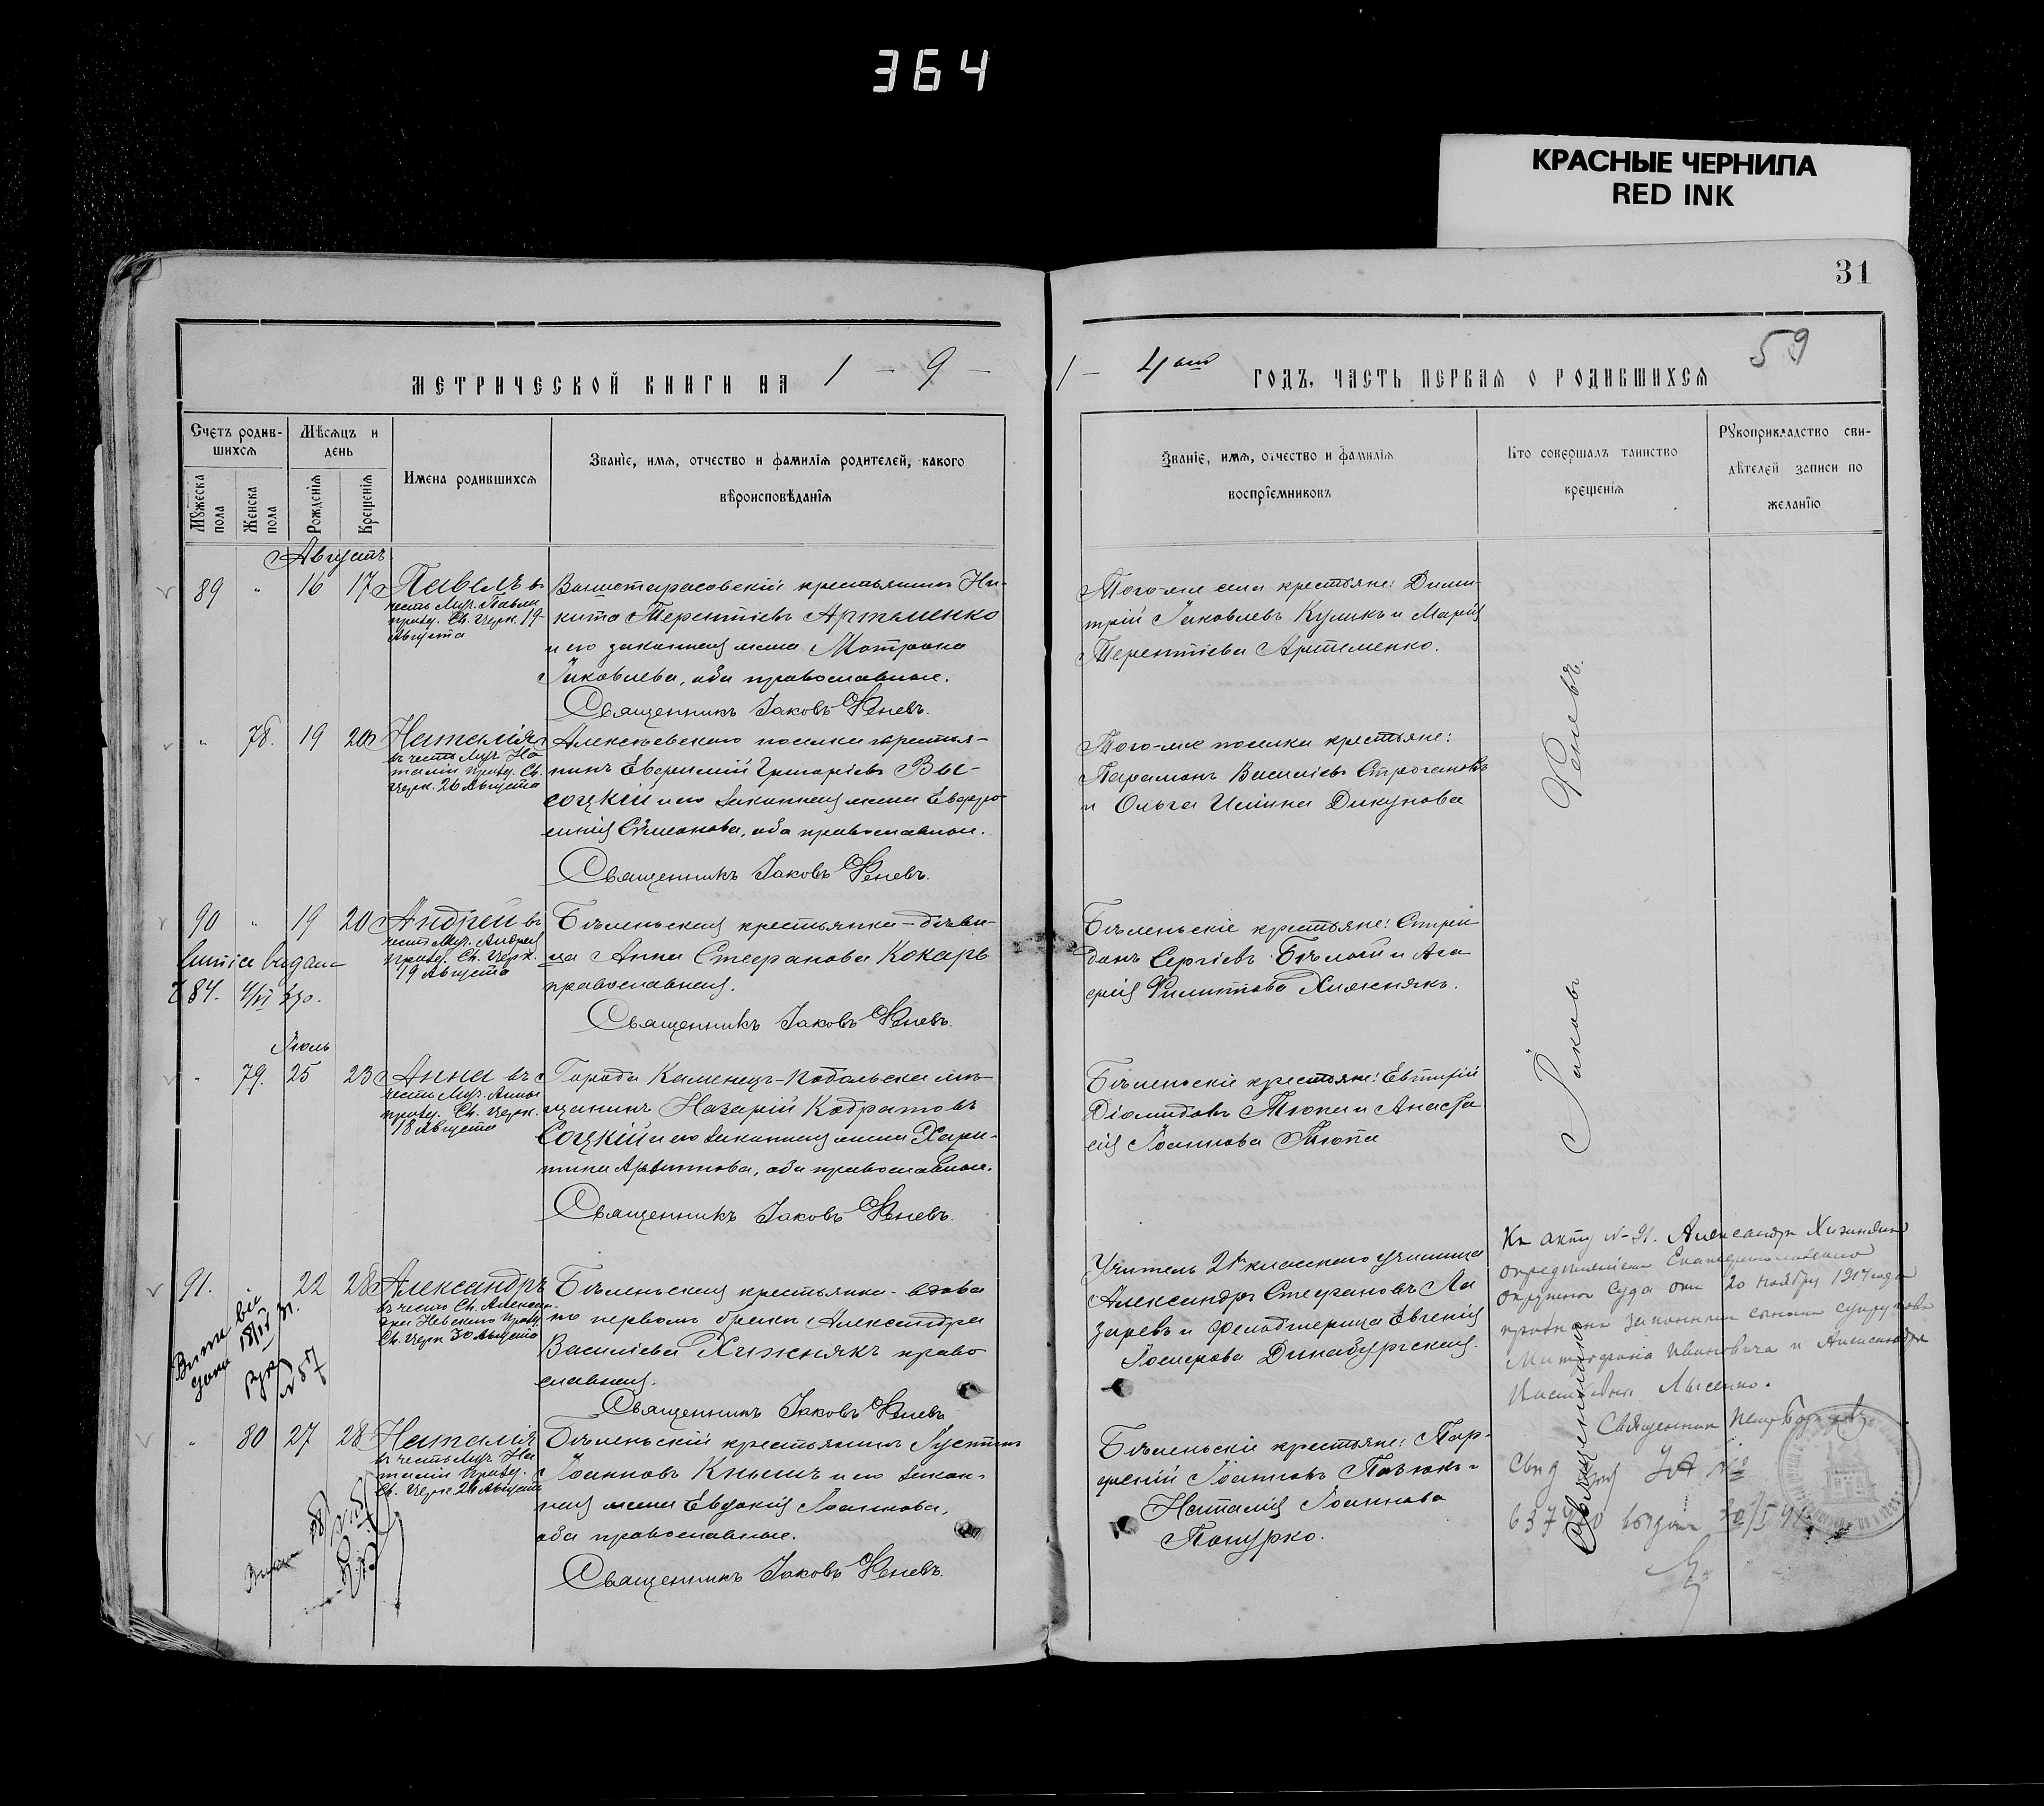 364
КРАСНЫЕ ЧЕРНИЛА
RED INK
31
59
МЕТРИЧЕСКОЙ КНИГИ НА 1 - 9 -
1 - 4ый ГОДЪ, ЧАСТЬ ПЕРВАЯ О РОДИВШИХСЯ
Счетъ родив-
шихся
Мѣсяцъ и
день
Мужеска
пола
Женска
пола
Рожденія
Крещенія
Имена родившихся
Званіе, имя, отчество и фамилія родителей, какого
вѣроисповѣданія
Званіе, имя, отчество и фамилія
воспріемниковъ
Кто совершалъ таинство
крещенія
Рукоприкладство сви-
дѣтелей записи по
желанію
Августъ
89 " 16 17
Павелъ въ
честь Муч. Павла
право. Св. Церк. 19
Августа
крестьянинъ Ни-
кита Терентіевъ Артеменко
и его законная жена Матрона
Іаковлева, оба православные.
Священникъ Іаковъ
Того-же села крестьяне: Дими-
трій Іаковлевъ Куликъ и Марія
Терентіева Артеменко.
" 78. 19 20
Наталія
въ честь Муч. На
таліи право. Св.
Церк. 26 Августа
Алексѣевского поселка крестья-
нинъ Евѳимій Григоріевъ Вы-
соцкій и его законная жена Евфро-
синія Сѵмеонова, оба православные.
Священникъ Іаковъ
Того-же поселка крестьяне:
Парамонъ Василіевъ Строгановъ
и Ольга Ильина Дикунова
90 " 19 20
Андрей въ
честь Муч. Андрея
право. Св. Церк.
19 Августа
Бѣленьская крестьянка-дѣви-
ца Анна Стефанова Кокарь
православная.
Священникъ Іаковъ
Бѣленьскіе крестьяне: Спири-
донъ Сергіевъ Бѣлый и Ага
фія Филиппова Хижнякъ.
84.
Іюль
" 79. 25 23
Анна въ
честь Муч. Анны
право. Св. Церк.
18 Августа
Города Каменецъ-Подольска мѣ-
щанинъ Назарій Кодратовъ
Соцкій и его законная жена Хари-
тина оба православные.
Священникъ Іаковъ
Бѣленьскіе крестьяне: Евтихій
Діомидовъ Тюпа и Анаста
сія Іоаннова Тюпа
91. " 22 28
Александръ
въ честь Св. Алексан-
дра Невскаго право.
Св. Церк 30 Августа
Бѣленьская крестьянка-вдова
по первомъ бракѣ Александра
Василіева Хижнякъ право
славная.
Священникъ Іаковъ
Учитель 2хъ класснаго училища
Александръ Стефановъ Ла
заревъ и фельдшерица Евгенія
Динабургская.
Къ акту №-91. Александръ Хижнякъ
опредѣленіемъ Екатеринославскаго
Окружного Суда отъ 20 Ноября 1917 года
признанъ законнымъ сыномъ супруговъ
Митрофана Ивановича и Александры
Васильевны Лысенко.
Священникъ
№ 57
" 80 27 28
Наталія
въ честь Муч На
таліи право.
Св. Церк 26 Августа
Бѣленьскій крестьянинъ Іустинъ
Іоанновъ Кнышъ и его закон-
ная жена Евдокія Іоаннова,
оба православные.
Священникъ Іаковъ
Бѣленьскіе крестьяне: Пар-
феній Іоанновъ Позюкъ и
Наталія Іоаннова
Понурко.
Священникъ
Іаковъ